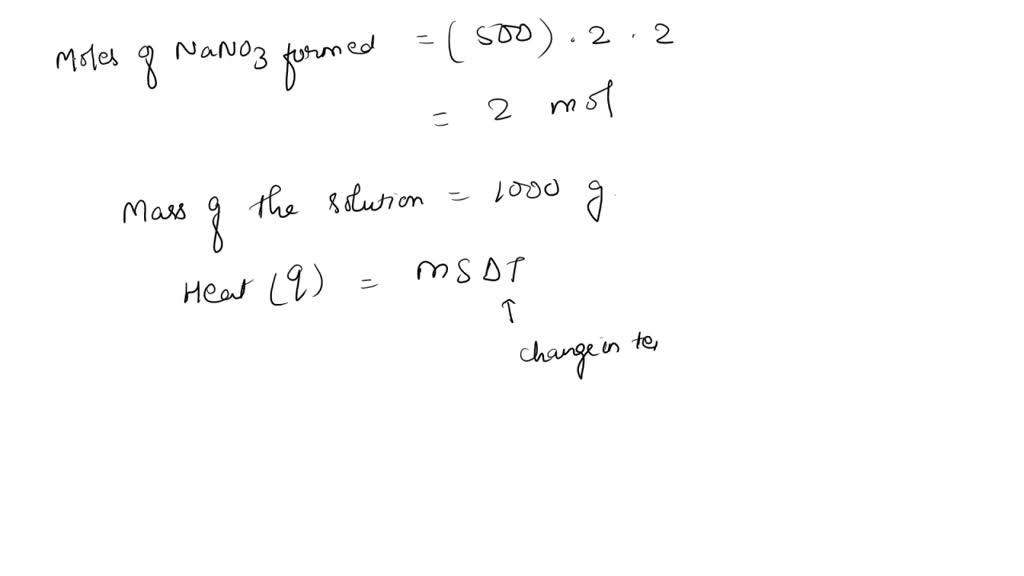 Moles of NaNO3 formed = (500) . 2 . 2
= 2 mol
Mass of the solution = 1000 g.
Heat (q) = m S Δ T
↑
change in te,